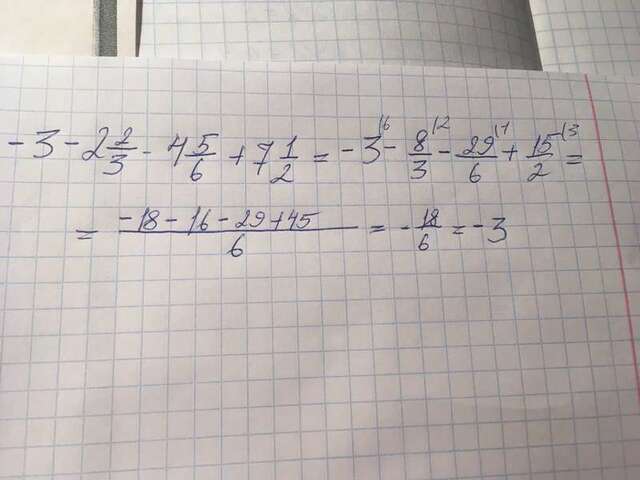 -3 - 2 2/3 - 4 5/6 + 7 1/2 = -3^{\6} - 8/3^{\2} - 29/6^{\1} + 15/2^{\3} =
= (-18 - 16 - 29 + 45)/6 = -18/6 = -3